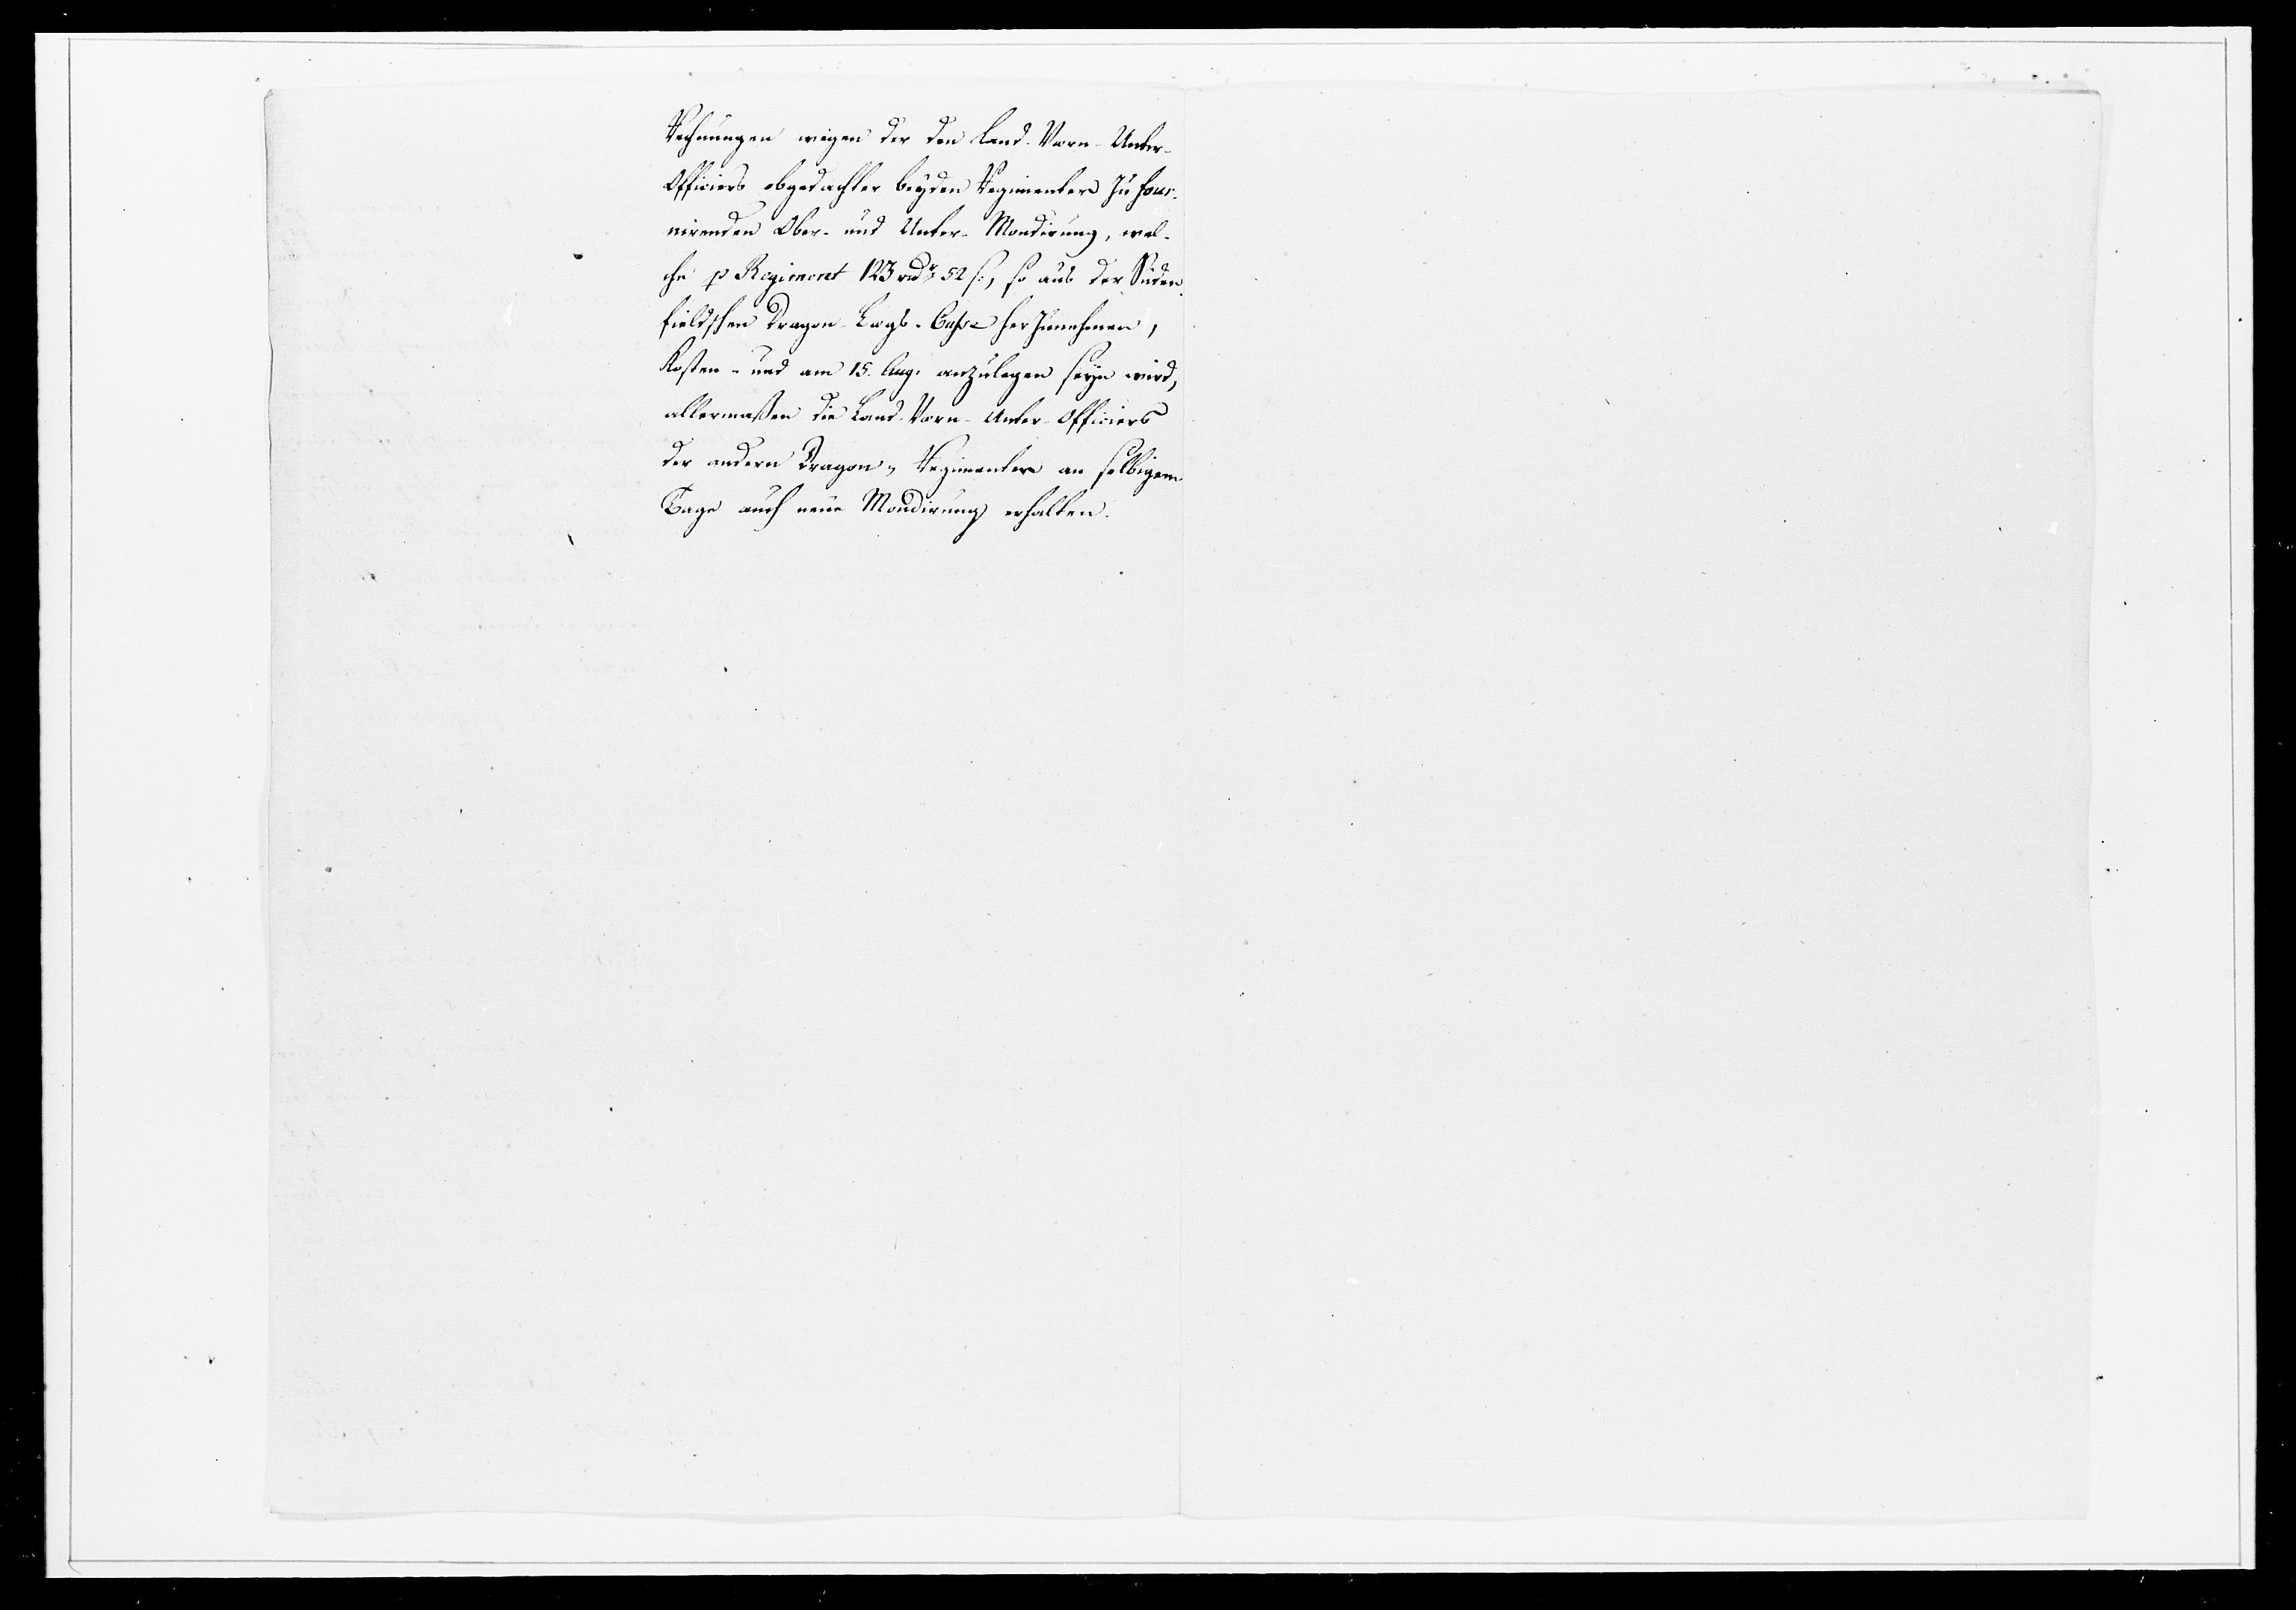 Rechnungen wegen der den Land-Vorn-Unter-
Officiers obgedachter beyden Regimenter zu four-
nirenden Ober- und Unter-Mondirung, wel-
che p Regiment 123 rdr 52 s:, so aus der Süden-
fieldschen Dragon-Lægs-Casse herzunehmen,
kosten- und am 15. Aug. anzulegen seyn wird,
allermaßen die Land-Vorn-Unter-Officiers
der andern Dragon-Regimenter an selbigem
Tage auch neue Mondirung erhalten.